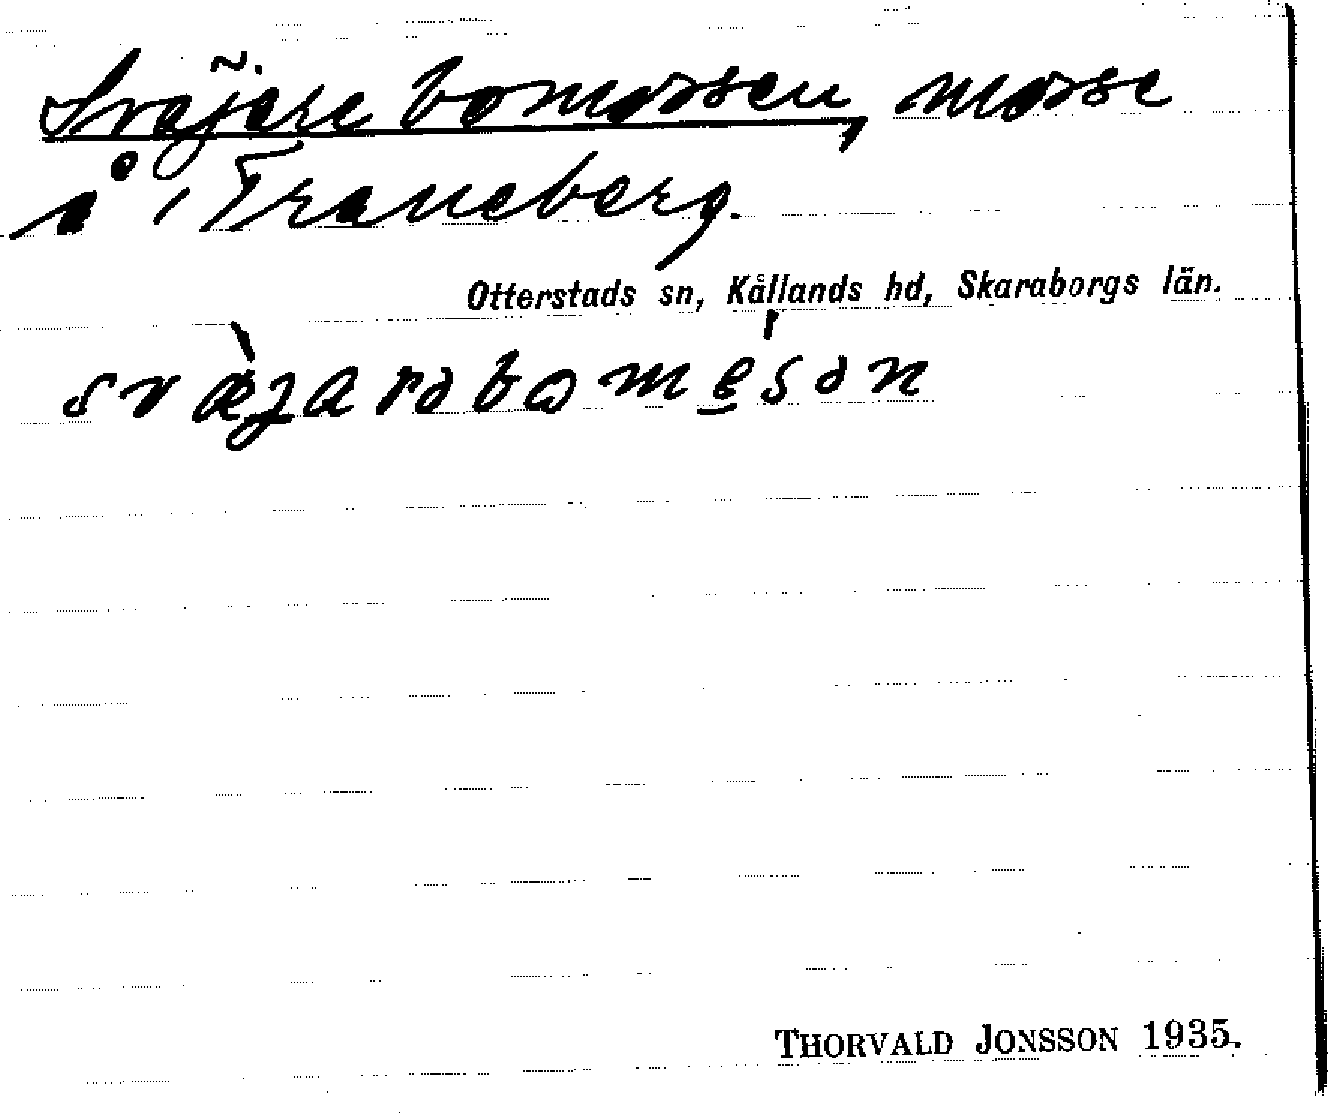 Sväjare bomossen, mosse
å 1/1 Traneberg.
Otterstads sn, Kållands hd, Skaraborgs län.
THORVALD JONSSON 1935.